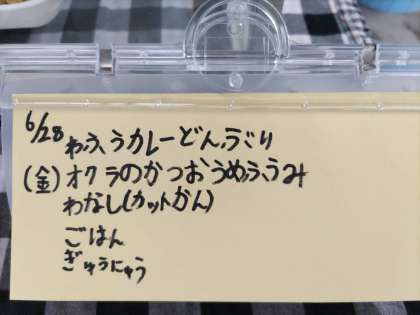 6/28
わふうカレーどんぶり
(金)オクラのかつおうめふうみ
わなし(カットかん)
ごはん
ぎゅうにゅう